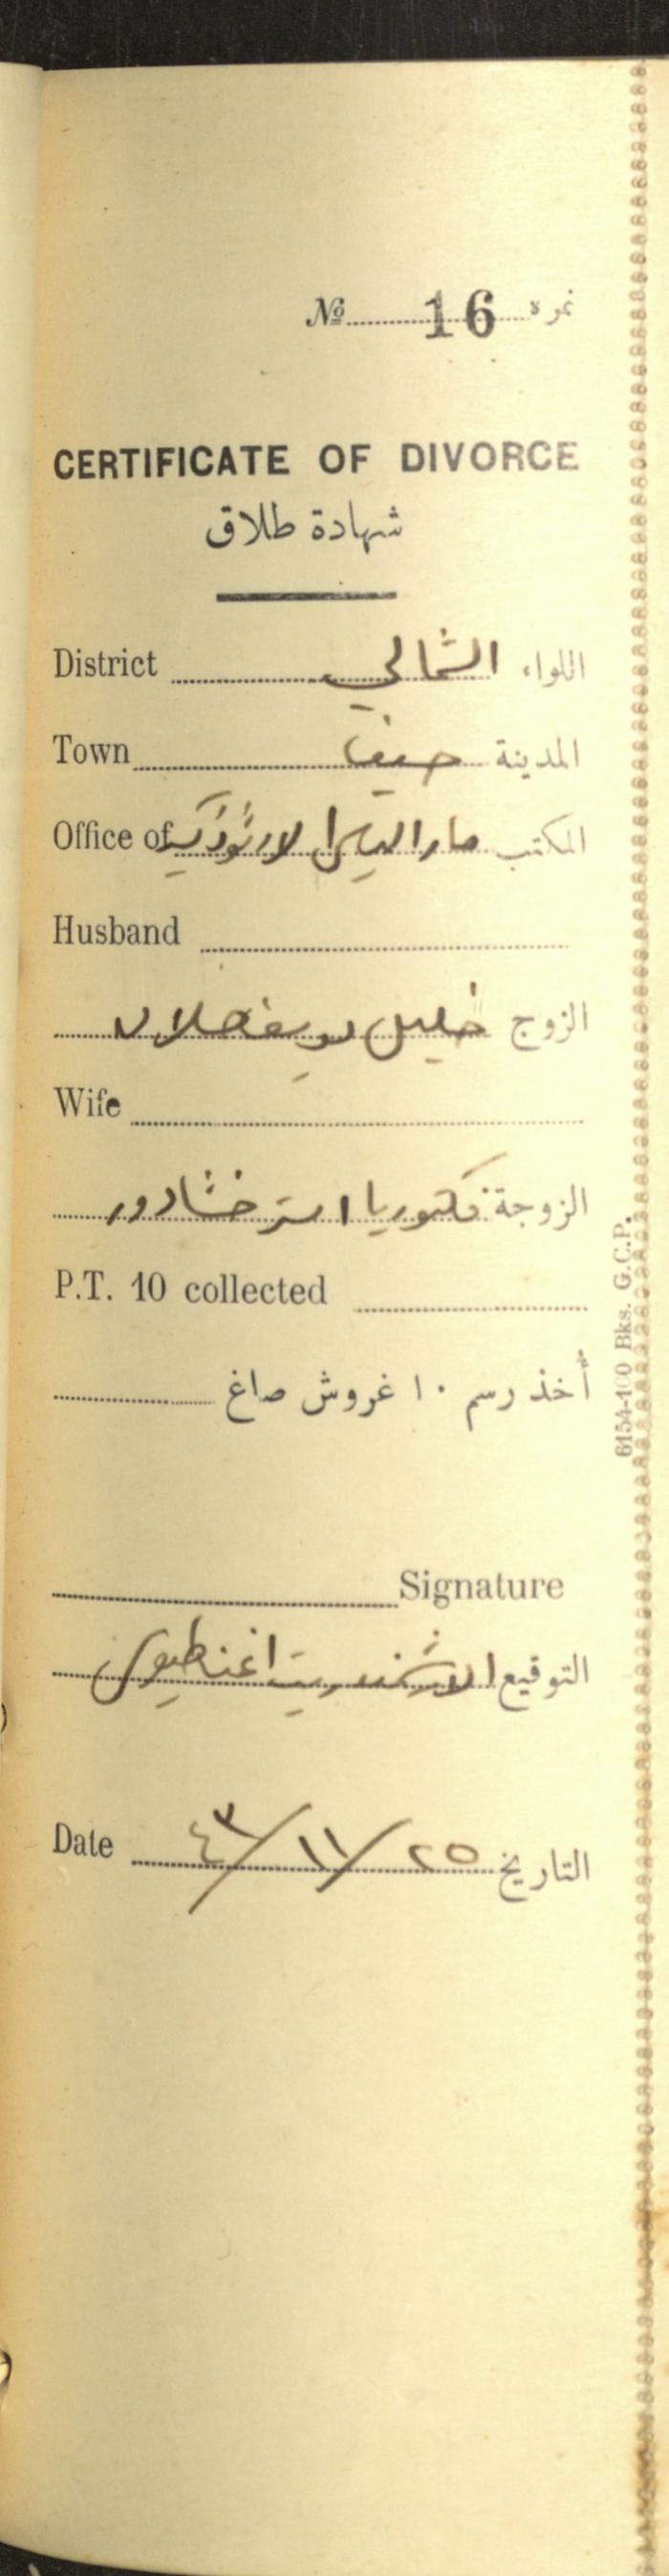 № 16 نمرة
CERTIFICATE OF DIVORCE
شهادة طلاق
District الشمالي اللواء
Town حيفا المدينة
Office of مار الياس الارثوذكسية المكتب
Husband
الزوج خليل
Wife
الزوجة فكتوريا استر خشادور
P.T. 10 collected
أخذ رسم ١٠ غروش صاغ
Signature
التوقيع اغناطيوس
Date ٢٥/١١/٤٣ التاريخ
6154-100 Bks. G.C.P.